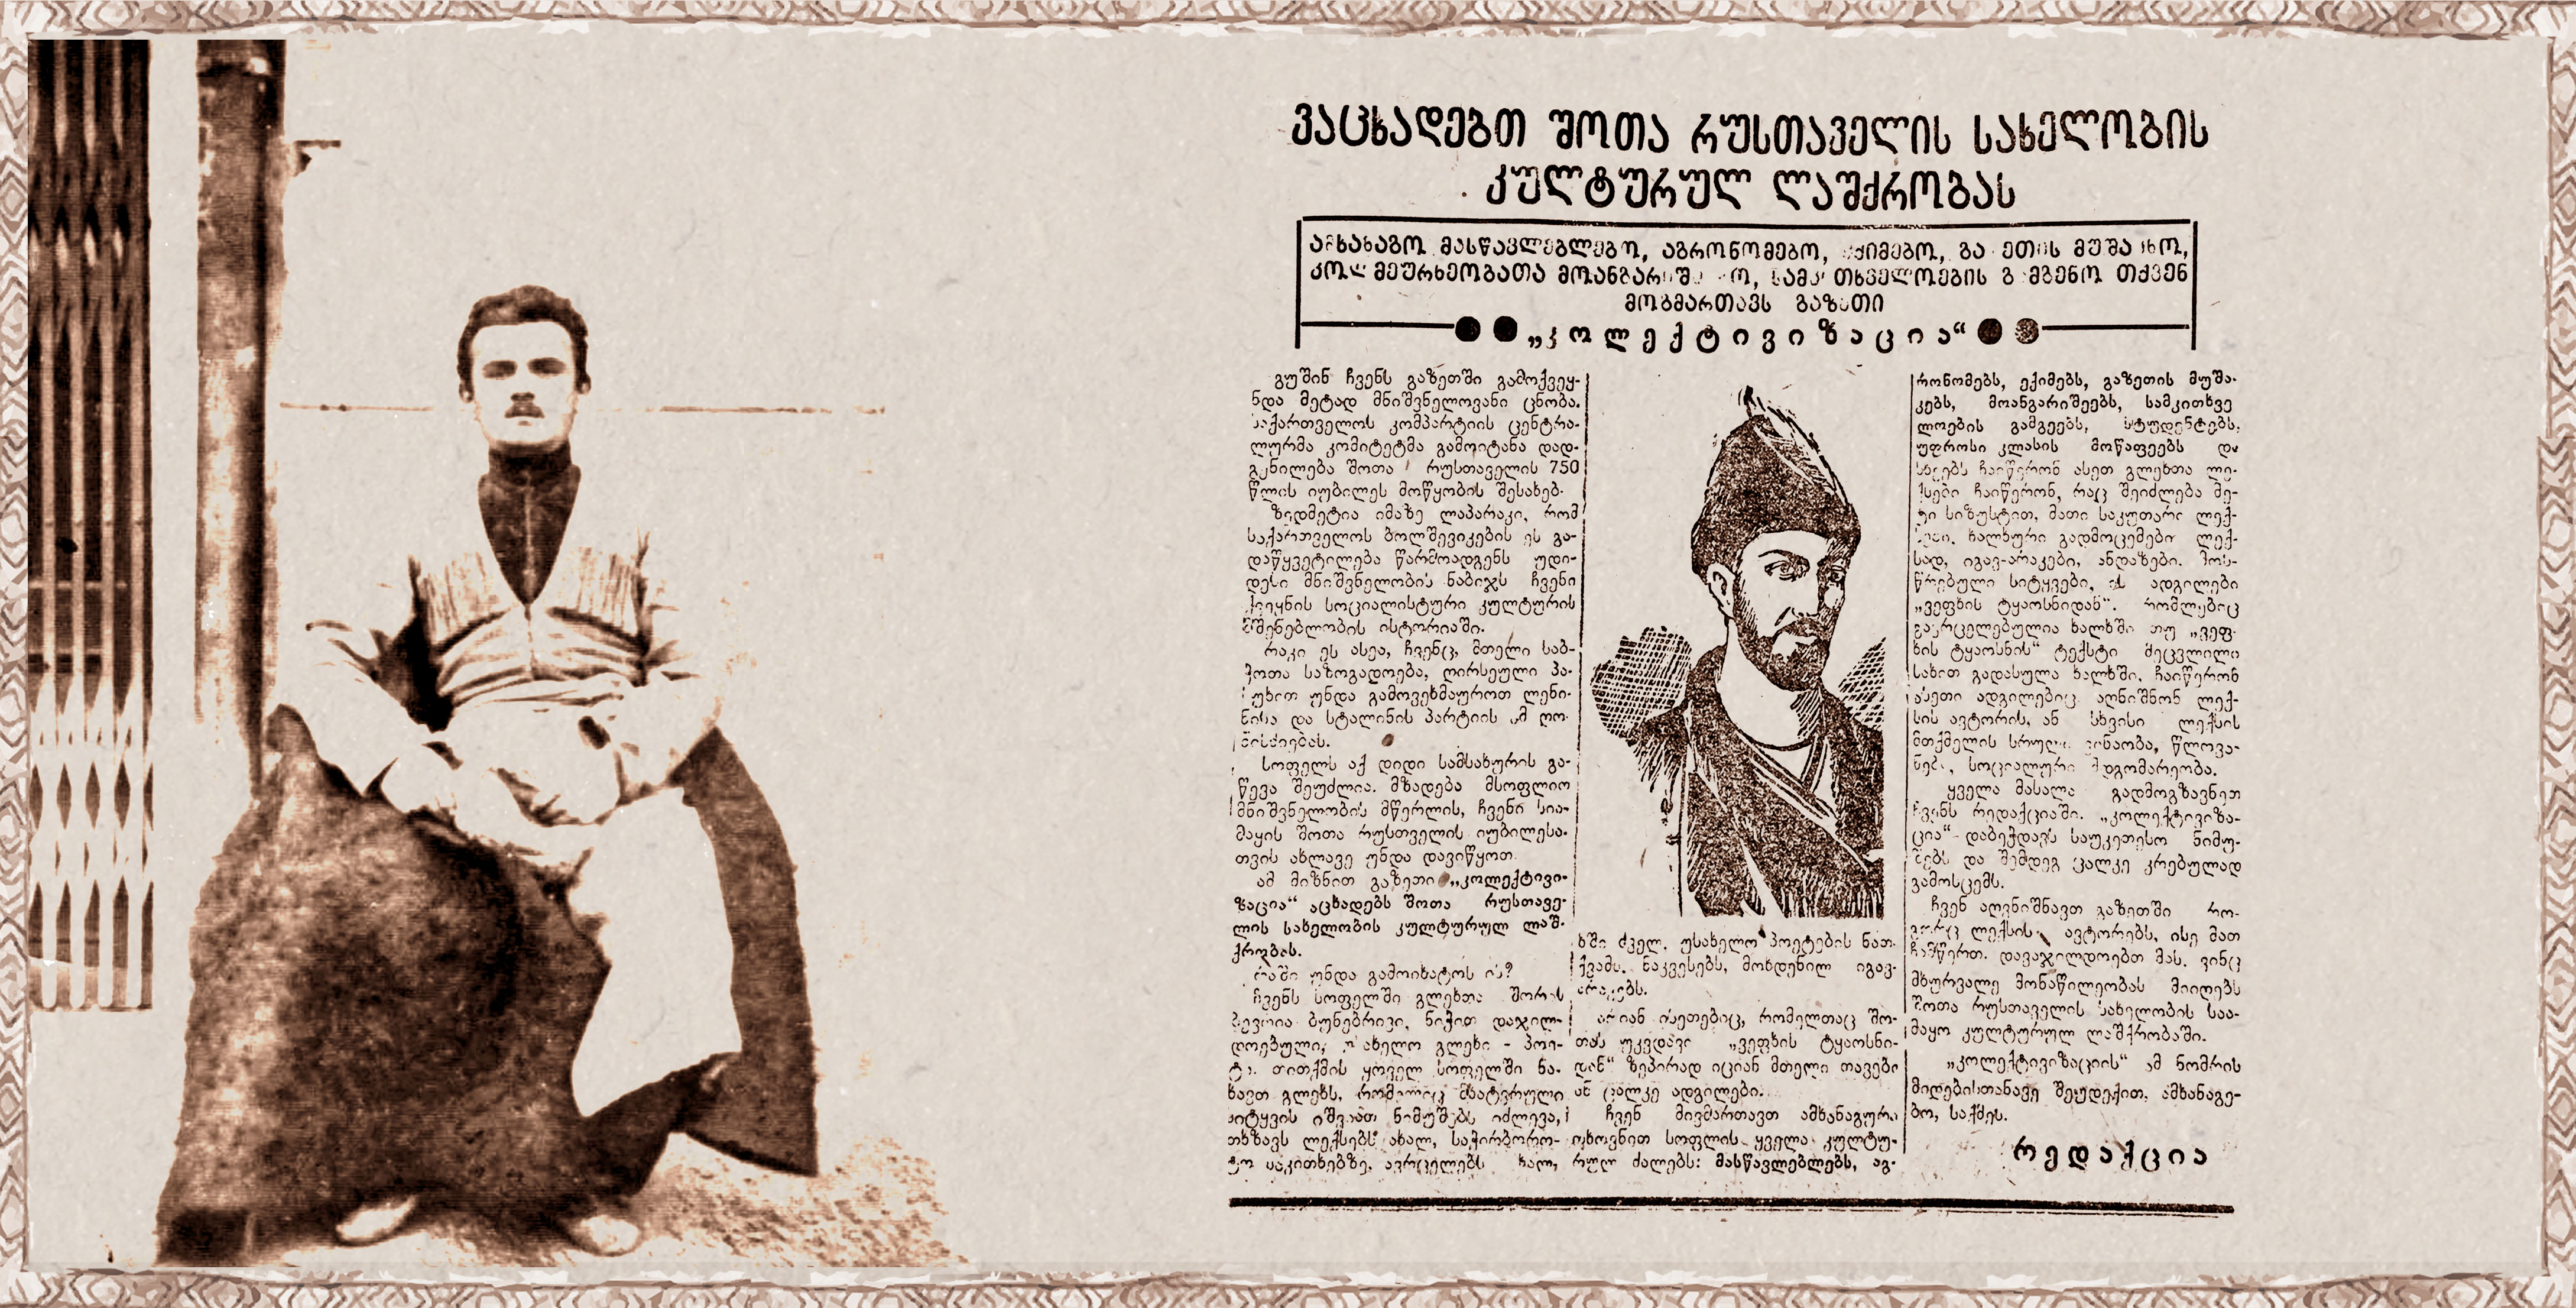 ვაცხადებთ შოთა რუსთაველის სახელობის
კულტურულ ლაშქრობას
მასწავლებლებო, აგრონომებო,
თქვენ
მოგმართავს გაზეთი
„კოლექტივიზაცია“
გუშინ ჩვენს გაზეთში გამოქვეყ-
ნდა მეტად მნიშვნელოვანი ცნობა.
საქართველოს კომპარტიის ცენტრა-
ლურმა კომიტეტმა გამოიტანა დად-
გენილება შოთა რუსთაველის 750
წლის იუბილეს მოწყობის შესახებ.
ზედმეტია იმაზე ლაპარაკი, რომ
საქართველოს ბოლშევიკების ეს გა-
დაწყვეტილება წარმოადგენს უდი-
დესი მნიშვნელობის ნაბიჯს ჩვენი
ქვეყნის სოციალისტური კულტურის
მშენებლობის ისტორიაში.
რაკი ეს ასეა, ჩვენც, მთელი საბ-
ჭოთა საზოგადოება, ღირსეული პა-
უნდა გამოვეხმაუროთ ლენი-
ნისა და სტალინის პარტიის ამ ღო-
ნისძიებას.
სოფელს აქ დიდი სამსახურის გა-
წევა შეუძლია. მზადება მსოფლიო
მნიშვნელობის მწერლის, ჩვენი სია-
მაყის შოთა რუსთველის იუბილესა-
თვის ახლავე უნდა დავიწყოთ.
ამ მიზნით გაზეთი „კოლექტივი-
ზაცია“ აცხადებს შოთა რუსთავე-
ლის სახელობის კულტურულ ლაშ-
ქრობას.
რაში უნდა გამოიხატოს ის?
ჩვენს სოფელში გლეხთა შორის
ბევრია ბუნებრივი, ნიჭით დაჯილ-
დოებული, გლეხი - პოე-
ტი. თითქმის ყოველ სოფელში ნა-
ხავთ გლეხს, მხატვრული
სიტყვის ნიმუშებს იძლევა,
თხზავს ლექსებს ახალ, საჭირბორო-
ტო საკითხებზე, ავრცელებს ხალ-
ხში ძველ, უსახელო პოეტების ნათ-
ქვამს, ნაკვესებს, მოხდენილ იგავ-
არაკებს.
არიან ისეთებიც, რომელთაც შო-
თას უკვდავი „ვეფხის ტყაოსნი-
დან“ ზეპირად იციან მთელი თავები
ან ცალკე ადგილები.
ჩვენ მივმართავთ ამხანაგური
თხოვნით სოფლის ყველა კულტუ-
რულ ძალებს: მასწავლებლებს, აგ-
რონომებს, ექიმებს, გაზეთის მუშა-
კებს, მოანგარიშეებს, სამკითხვე
ლოების გამგეებს, სტუდენტებს,
უფროსი კლასის მოწაფეებს და
სხვებს ჩაიწერონ ასეთ გლეხთა ლე-
ქსები ჩაიწერონ, რაც შეიძლება მე-
ტი სიზუსტით, მათი საკუთარი ლექ-
სები, ხალხური გადმოცემები ლექ-
სად, იგავ-არაკები, ანდაზები.
სიტყვები, ის ადგილები
„ვეფხის ტყაოსნიდან“. რომლებიც
გავრცელებულია ხალხში თუ „ვეფ-
ხის ტყაოსნის“ ტექსტი შეცვლილი
სახით გადასულა ხალხში, ჩაიწერონ
ასეთი ადგილებიც. აღნიშნონ ლექ-
სის ავტორის, ან სხვისი ლექსის
მთქმელის სრული ვინაობა, წლოვა-
ნება, სოციალური მდგომარეობა.
ყველა მასალა გადმოგზავნეთ
ჩვენს რედაქციაში. „კოლექტივიზა-
ცია“ დაბეჭდავს საუკეთესო ნიმუ-
შებს და შემდეგ ცალკე კრებულად
გამოსცემს.
ჩვენ აღვნიშნავთ გაზეთში რო-
გორც ლექსის ავტორებს, ისე მათ
ჩამწერთ. დავაჯილდოებთ მას, ვინც
მხურვალე მონაწილეობას მიიღებს
შოთა რუსთაველის სახელობის საა-
მაყო კულტურულ ლაშქრობაში.
„კოლექტივიზაციის“ ამ ნომრის
მიღებისთანავე შეუდექით, ამხანაგე-
ბო, საქმეს.
რედაქცია